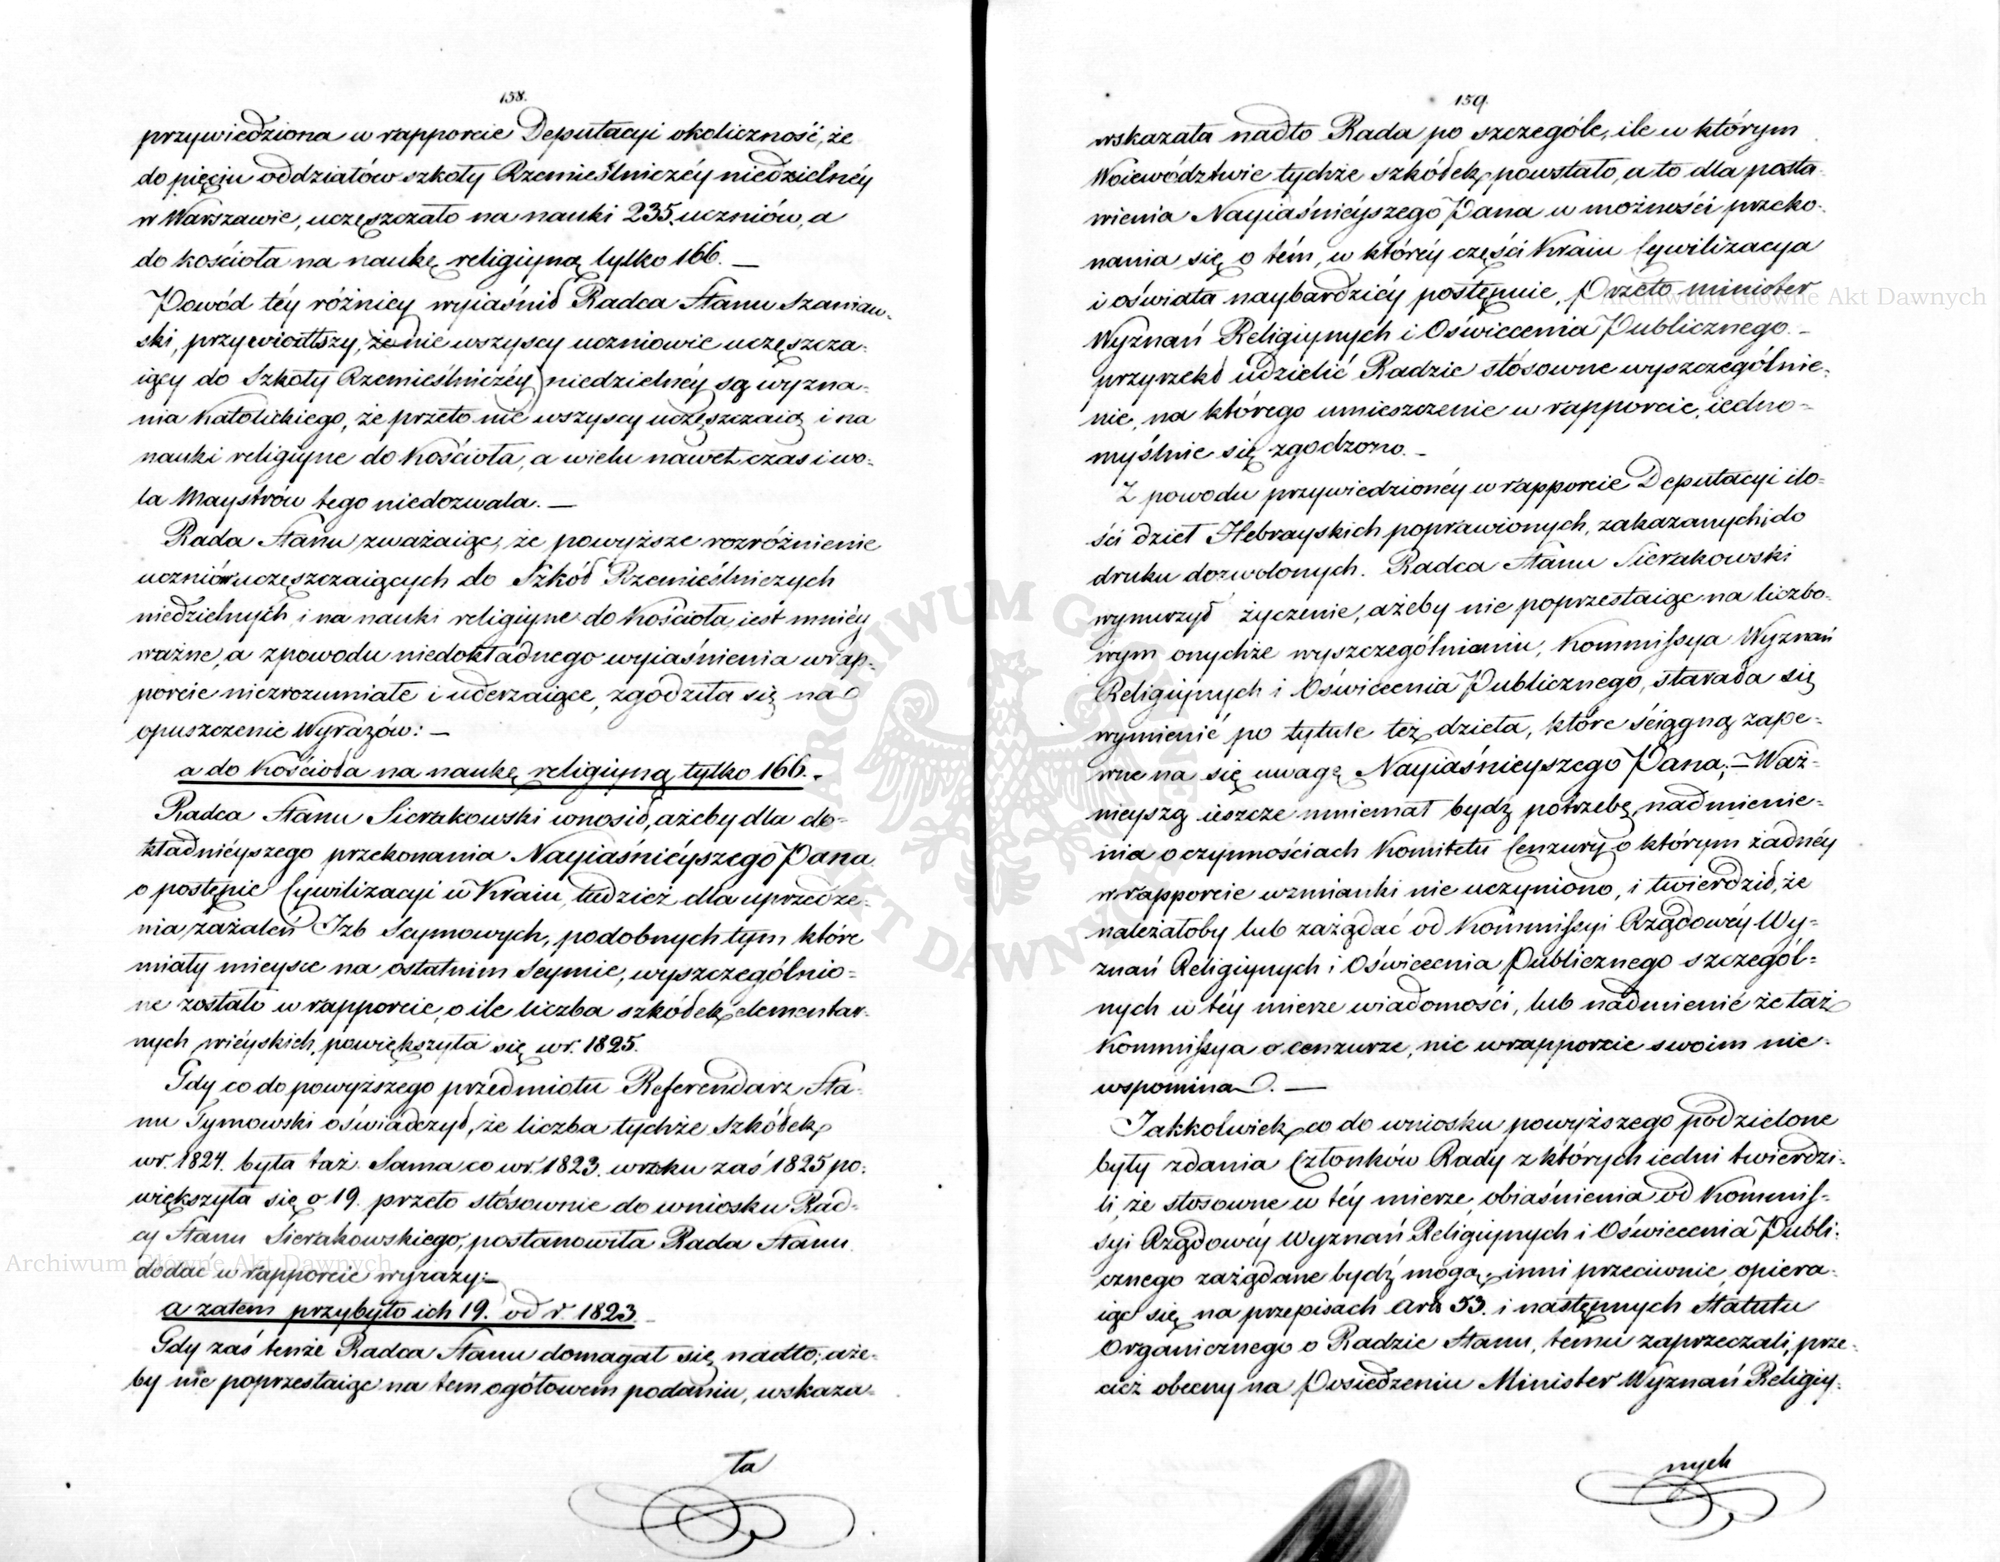 158.
przywiedziona w rapporcie Deputacyi okoliczność, że
do pięciu oddziałów szkoły Rzemieślniczéy niedzielnéy
w Warszawie, uczęszczało na nauki 235. uczniów, a
do kościoła na naukę religiyną tylko 166. —
Powód téy różnicy wyiaśnił Radca Stanu Szaniaw-
ski, przywiódłszy, że nie wszyscy uczniowie uczęszcza-
iący do Szkoły Rzemieślniczéy niedzielnéy są wyzna-
nia Katolickiego, że przeto nie wszyscy uczęszczaią i na
nauki religiyne do Kościoła, a wielu nawet czas i wo-
la Maystrów tego niedozwala. —
Rada Stanu zważaiąc, że powyższe rozróżnienie
uczniów uczęszczaiących do Szkół Rzemieślniczych
niedzielnych i na nauki religiyne do Kościoła, iest mniéy
ważne, a z powodu niedokładnego wyiaśnienia w rap-
porcie niezrozumiałe i uderzaiące, zgodziła się na
opuszczenie Wyrazów: —
a do Kościoła na naukę religiyną tylko 166. -
Radca Stanu Sierakowski wnosił, ażeby dla do-
kładniéyszego przekonania Nayiaśniéyszego Pana
o postępie Cywilizacyi w Kraiu, tudzież dla uprzedze-
nia zażaleń Izb Seymowych, podobnych tym które
miały mieysce na ostatnim Seymie, wyszczególnio-
ne zostało w rapporcie, o ile liczba szkółek elementar-
nych wiéyskich, powiększyła się w r. 1825.
Gdy co do powyższego przedmiotu Referendarz Sta-
nu Tymowski oświadczył, że liczba tychże Szkółek
w r. 1824. była taż Sama co w r. 1823. w roku zaś 1825 po-
większyła się o 19. przeto stósownie do wniosku Rad-
cy Stanu Sierakowskiego, postanowiła Rada Stanu
dodać w rapporcie wyrazy: —
a zatem przybyło ich 19. od r. 1823.
Gdy zaś tenże Radca Stanu domagał się nadto, aże-
by nie poprzestaiąc na tem ogółowem podaniu, wskaza-
ła
159.
wskazała nadto Rada po szczególe, ile w którym
Woiewództwie tychże szkółek powstało, a to dla posta-
wienia Nayiaśniéyszego Pana w możności przeko-
nania się o tém, w któréy części Kraiu Cywilizacya
i oświata naybardziéy postępuie, Przeto minister
Wyznań Religiynych i Oświecenia Publicznego. —
przyrzekł udzielić Radzie stósowne wyszczególnie-
nie, na którego umieszczenie w rapporcie, iedno-
myślnie się zgodzono. —
Z powodu przywiedzionéy w rapporcie Deputacyi ilo-
ści dzieł Hebrayskich poprawionych, zakazanych i do
druku dozwolonych. Radca Stanu Sierakowski
wynurzył życzenie, ażeby nie poprzestaiąc na liczbo-
wym onychże wyszczególnianiu, Kommissya Wyznań
Religiynych i Oświecenia Publicznego, starała się
wymienić po tytule też dzieła, które ściągną zape-
wne na się uwagę Nayiaśnieyszego Pana; — Waż-
nieyszą ieszcze mniemał bydź potrzebę nadmienie-
nia o czynnościach Komitetu Cenzury, o którym żadnéy
w rapporcie wzmianki nie uczyniono, i twierdził, że
należałoby lub zażądać od Kommissyi Rządowéy Wy-
znań Religiynych i Oświecenia Publicznego szczegól-
nych w téy mierze wiadomości, lub nadmienić że taż
Kommissya o cenzurze, nic w rapporcie swoim nie
wspomina. —
Jakkolwiek co do wniosku powyższego podzielone
były zdania Członków Rady z których iedni twierdzi-
li, że stosowne w téy mierze obiaśnienia od Kommis-
syi Rządowéy Wyznań Religiynych i Oświecenia Publi-
cznego zażądane bydź mogą, inni przeciwnie, opiera-
iąc się na przepisach Art: 53. i następnych Statutu
Organicznego o Radzie Stanu, temu zaprzeczali, prze-
cież obecny na Posiedzeniu Minister Wyznań Religiy-
nych
Archiwum Główne Akt Dawnych
Archiwum Główne Akt Dawnych
ARCHIWUM GŁÓWNE AKT DAWNYCH